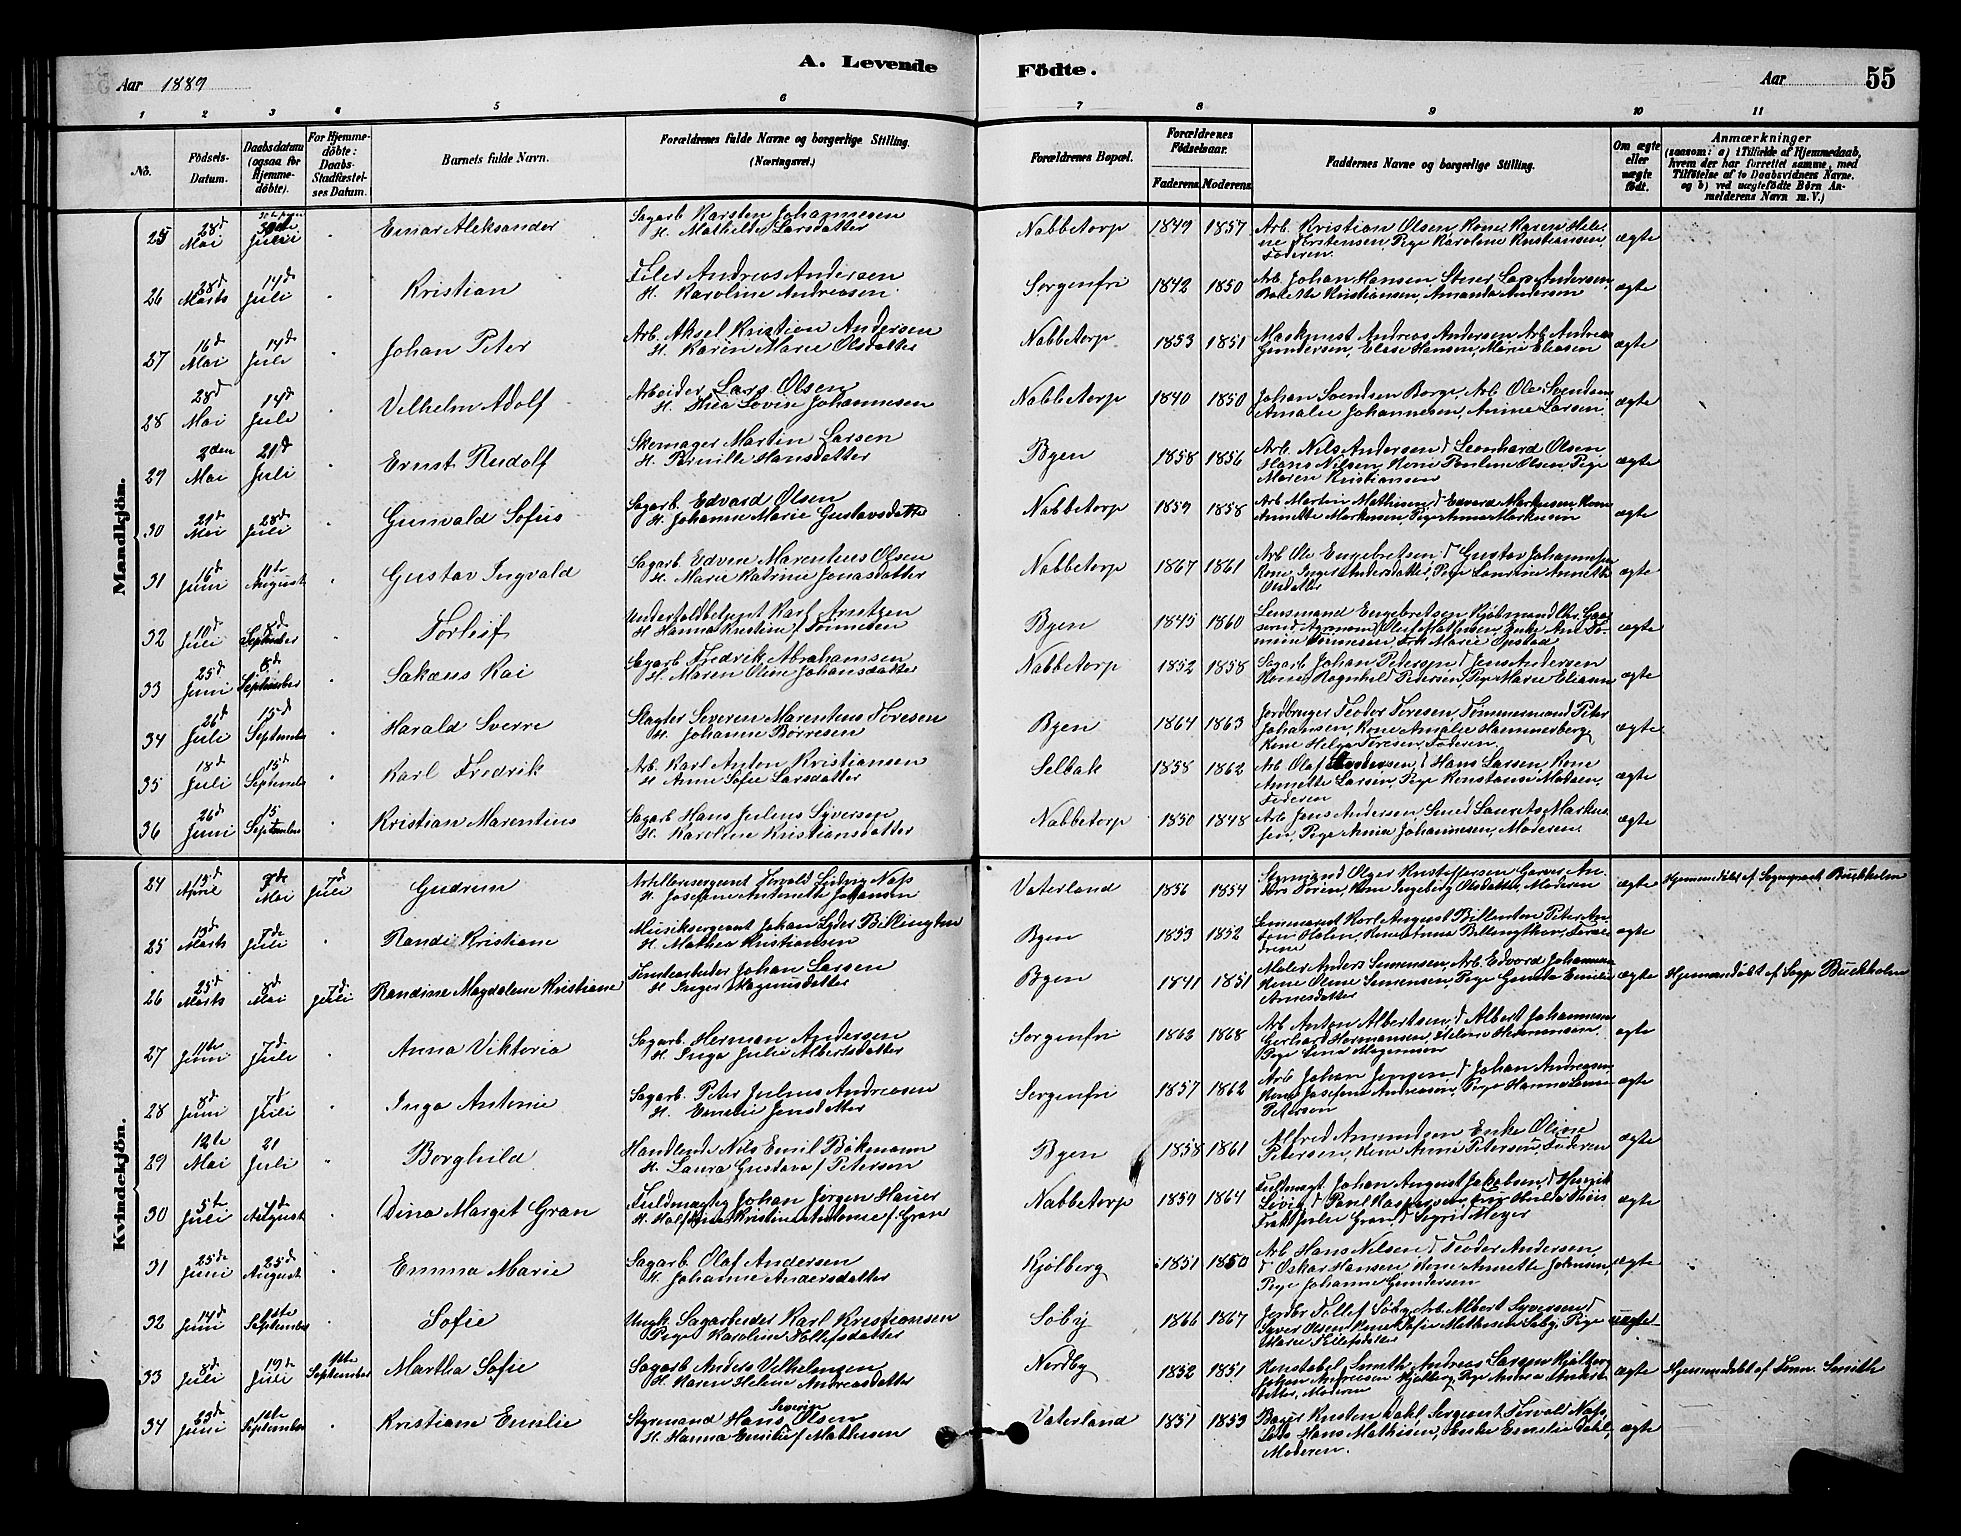 A. Levende Födte.
Aar 1889
Aar
55
1 2 3 4 5 6 7 8 9 10 11
No.
Födsels-Datum.
Daabsdatum (ogsaa for Hjemmedöbte).
For Hjemmedöbte: Daabs-Stadfæstelses Datum.
Barnets fulde Navn.
Forældrenes fulde Navne og borgerlige Stilling. (Næringsvei.)
Forældrenes Bopæl.
Forældrenes Födselsaar.
Faderens. Moderens.
Faddernes Navne og borgerlige Stilling.
Om ægte eller uægte födt.
Anmærkninger
(saasom: a) i Tilfælde af Hjemmedaab, hvem der har forrettet samme, med Tilföielse af to Daabsvidners Navne, og b) ved uægtefödte Börn Anmelderens Navn m. V.)
Mandkjön.
25 28d Mai Juli Einar Aleksander Sagarb. Karsten Johannesen H. Mathilde Larsdatter Nabbetorp 1849 1857 Arb. Kristian Olsen, Kone Karen Helene Torstensen, Pige Karoline Kristiansen, Faderen ægte
26 28d Marts 14d Juli Kristian Filer Andreas Andersen H. Karoline Andreasen Sorgenfri 1842 1850 Arb. Johan Hansen, Lars Andersen, Kristiansen, Amanda Andersen ægte
27 16d Mai 14d Juli Johan Peter Arb. Aksel Kristian Andersen H. Karen Marie Olsdatter Nabbetorp 1853 1851 Maskinist Andreas Andersen, Arb. Andreas Gundersen, Elise Hansen, Marie Eliasen ægte
28 28d Mai 14d Juli Vilhelm Adolf Arbeider Lars Olsen H. Thea Lovise Johannesen Nabbetorp 1840 1850 Johan Svendsen Borge, Arb. Ole Svendsen Amalie Johannesen, Anine Larsen ægte
29 2den Mai 21d Juli Ernst Rudolf Skomager Martin Larsen H. Pernille Hansdatter Byen 1858 1856 Arb. Nils Andersen, d Leonhard Olsen Hans Nilsen, Kone Pouline Olsen, Pige Maren Kristiansen ægte
30 21d Mai 28d Juli Gunvald Sofus Sagarb. Edvard Olsen H. Johanne Marie Gustavsdatter Nabbetorp 1859 1858 Arb. Martin Mathisen, d Edvard Markusen, Kone Annette Markusen, Pige Anna Markusen ægte
31 Juni August Gustav Ingvald Sagarb. Edvin Marentius Olsen H. Maren Katrine Jonasdatter Nabbetorp 1867 1861 Arb. Ole Engebretsen, d Gustav Johannesen Kone Inger Andersdatter, Pige Laurine Annette Olsdatter ægte
32 10d Juli 8d September Torleif Underfoldbetjent Karl Arntzen H. Hanna Kristine f Tönnesen Byen 1845 1860 Lensmand Engebretsen, Kjöbmand Chr. Olaf Mathisen, Enke Tönnesen, Frk Marie Opstad ægte
33 25d Juni 8d September Sakæus Kai Sagarb. Fredrik Abrahamsen H. Maren Oline Johansdatter Nabbetorp 1852 1858 Sagarb. Johan Petersen, d Jens Andersen Kone Ragnhild Petersen, Pige Marie Eliasen ægte
34 26d Juli 15d September Harald Sverre Slagter Severin Marentius Toresen H. Johanne Börresen Byen 1864 1863 Jordbruger Teodor Toresen, Tömmermand Peter Johansen, Kone Amalie Hammerberg, Kone Helga Toresen, Faderen ægte
35 18d Juli 15d September Karl Fredrik Arb. Karl Anton Kristiansen H. Anne Sofie Larsdatter Selbak 1858 1862 Arb. Olaf Andersen, d Hans Larsen, Kone Annette Larsen, Pige Konstanse Madsen, Faderen ægte
36 26d Juni 15 September Kristian Marentius Sagarb. Hans Julius Syversen H. Karoline Kristiansdatter Nabbetorp 1850 1848 Arb. Jens Andersen, Smed Laurits Markusen, Pige Anna Johannesen, Moderen ægte
Kvindekjön.
24 April Mai 7d Juli Gudrun Artillerisergeant Torvald Ludvig Næss H. Josefine Antonette Johansen Vaterland 1856 1854 Styrmand Olger Kristoffersen, Garver Torin, Kone Ingeborg Olsdatter, Moderen ægte Hjemmedöbt af Sogneprest Buckholm
25 13d Marts 7de Juli Randi Kristiane Musiksergeant Johan Lyder Billington H. Mathea Kristiansen Byen 1853 1852 Karl August Peter Holen, Kone Anne Billingthon, Forældrene ægte
26 25d Marts 8d Mai 7d Juli Randine Magdalene Kristiane Tomtearbeder Johan Larsen H. Inger Magnusdatter Byen 1841 1851 Maler Anders Simensen, Arb. Edvard Johannesen Kone Oline Simensen, Pige Emilie Arnesdatter ægte Hjemmedöbt af Sogp Buckholm
27 11te Juni 7d Juli Anna Viktoria Sagarb. Herman Andersen H. Inga Julie Albertsdatter Sorgenfri 1862 1868 Arb. Anton Albertsen, d Albert Johannesen Gerhard Hermansen, Helene Hermansen, Pige Lina Mogensen ægte
28 8d Juni 7d Juli Inga Antonie Sagarb. Peter Julius Andreasen H. Emelie Jensdatter Sorgenfri 1857 1862 Arb. Johan Jensen, d Johan Andreasen Kone Josefine Andreasen, Pige Hanna Petersen ægte
29 12te Mai 21 Juli Borghild Handlende Nils Emil Bökmann H. Laura Gustava f Petersen Byen 1858 1861 Alfred Amundsen, Enke Oline Petersen, Kone Anna Petersen, Faderen ægte
30 5te Juli August Dina Margit Gran Fuldmægtig Johan Jörgen Hauer H. Kristine Antonie f. Gran Nabbetorp 1859 1864 Fuldmægt. Johan August Jakobsen, d Paul Kaspersen, Frk Julie Gran, d Sigrid Meyer ægte
31 25de Juni 25d August Emma Marie Sagarb. Olaf Andersen H. Johanne Andersdatter Kjölberg 1851 1850 Arb. Hans Nilsen, d Teodor Andersen, d Oskar Hansen, Kone Annette Johnsen, Pige Johanne Gundersen ægte
32 14d Juni 1ste September Sofie Ungk. Sagarbeider Karl Kristiansen Pige Karoline Tollefsdatter Söby 1866 1867 Jordbr Tollef Söby, Arb. Albert Syversen, d Syver Olsen, Kone Sofie Mathisen Söby, Pige Marie Tollefsdatter uægte
33 8d Juli 19de Juli 1ste September Martha Sofie Sagarb. Anders Vilhelmsen H. Karen Helene Andreasdatter Nordby 1852 1851 Konstabel Smith, Andreas Larsen Kjölberg, Johan Andreasen Kjölberg, Pige Andrea Andersdatter, Moderen ægte Hjemmedöbt af Smith
34 23d Juni 1ste September Kristiane Emilie Styrmand Hans Severin Olsen H. Hanna Emilie f Mathisen Vaterland 1851 1853 Kristen Dahl, Sergeant Torvald Næss, Lods Hans Mathisen, Enke Emelie Dahl, Moderen. ægte